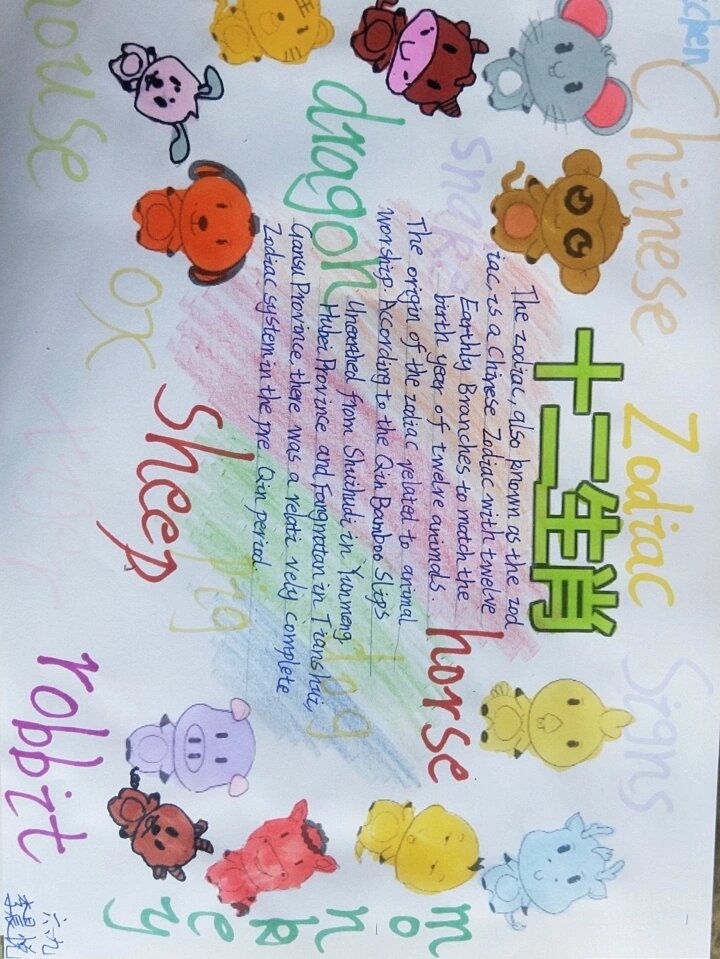 Chinese Zodiac Signs
十二生肖
snake
dragon
horse
The zodiac, also known as the zod
iac, is a Chinese Zodiac with twelve
Earthly Branches to match the
birth year of twelve animals
The origin of the zodiac related to animal
worship. According to the Qin Bamboo Slips
Unearthed from Shuihudi in Yunmeng.
Hubei Province and Fangmatan in Tianshui,
Gansu Province, there was a relati vely complete
Zodiac system in the pre Qin period.
dog
pig
sheep
monkey
mouse
ox
robbit
六九